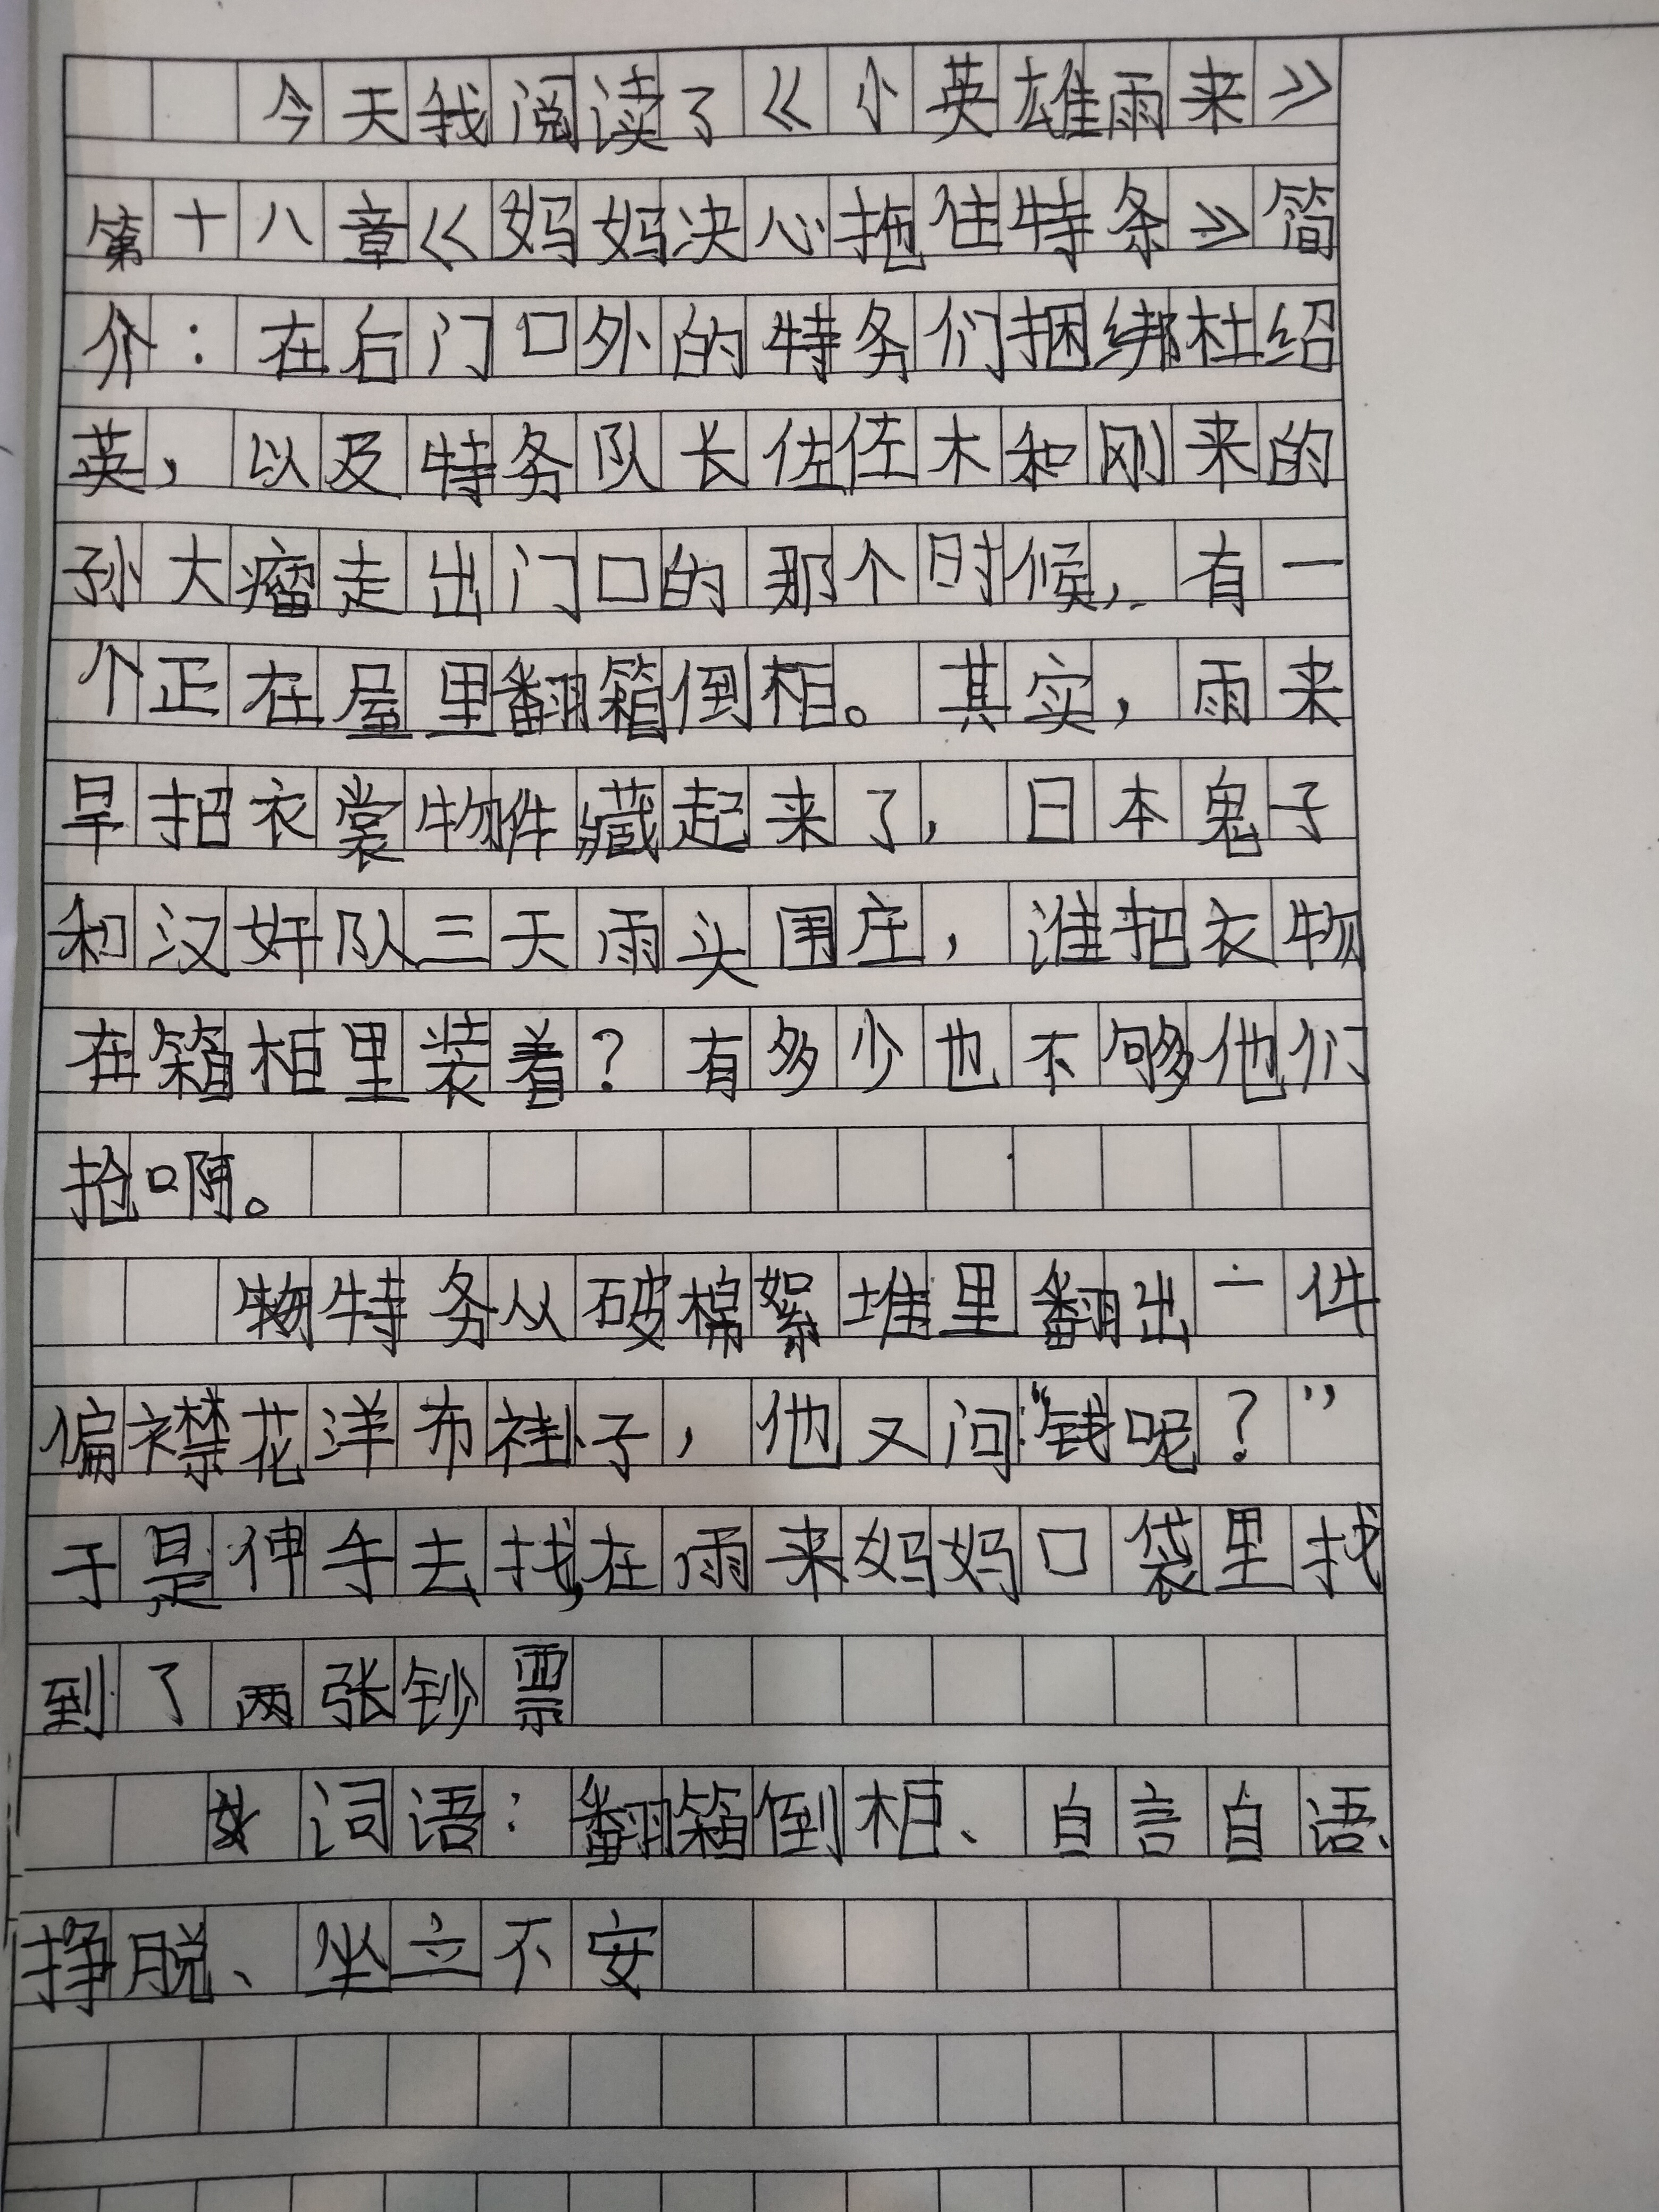 今天我阅读了《小英雄雨来》
第十八章《妈妈决心拖住特条》简
介：在后门口外的特务们捆绑杜绍
英，以及特务队长佐佐木和刚来的
孙大瘤走出门口的那个时候，有一
个正在屋里翻箱倒柜。其实，雨来
早把衣裳物件藏起来了，日本鬼子
和汉奸队三天雨头围庄，谁把衣物
在箱柜里装着？有多少也不够他们
抢啊。
特务从破棉絮堆里翻出一件
偏襟花洋布褂子，他又问：“钱呢？”
于是伸手去找，在雨来妈妈口袋里找
到了两张钞票
词语：翻箱倒柜、自言自语、
挣脱、坐立不安